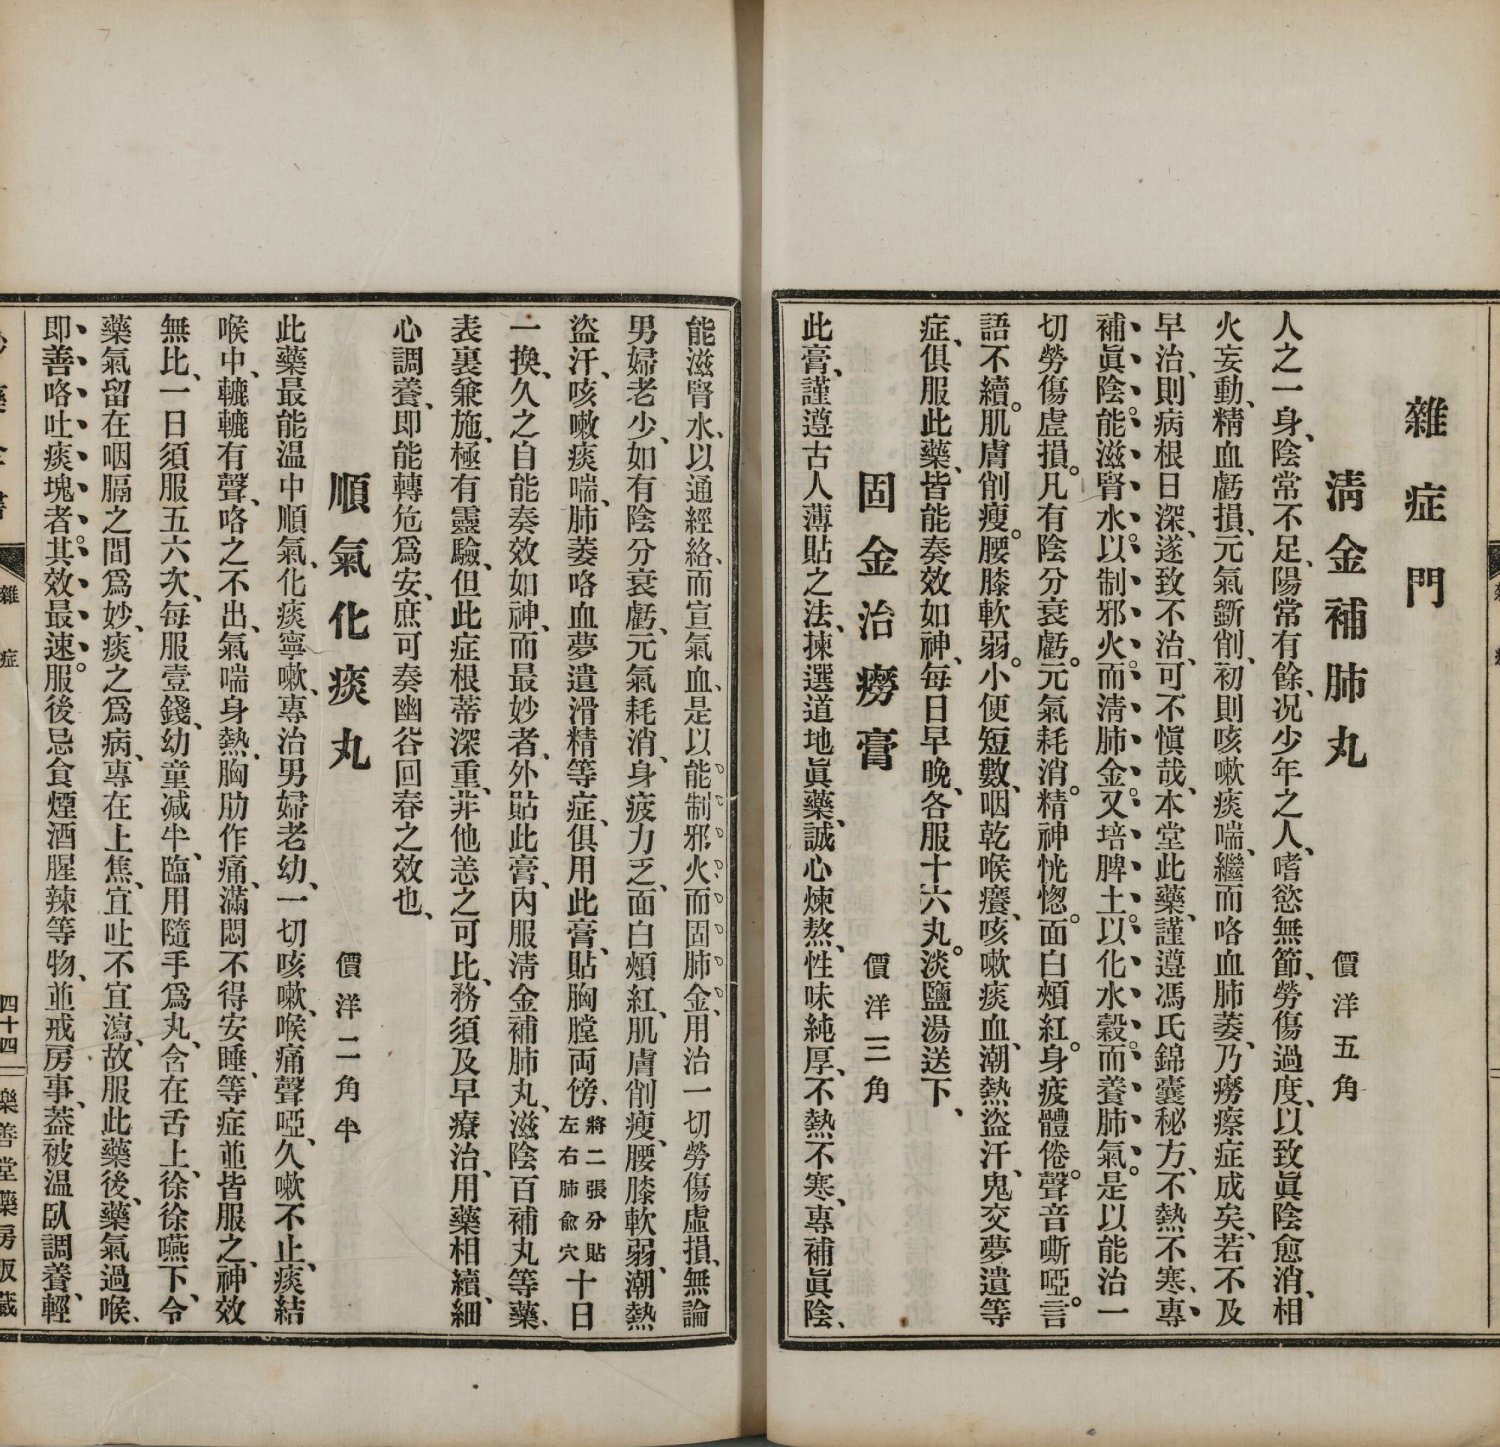 雜症門
清金補肺丸　價洋五角
人之一身、陰常不足、陽常有餘、况少年之人、嗜慾無節、勞傷過度、以致眞陰愈消、相
火妄動、精血虧損、元氣斵削、初則咳嗽痰喘、繼而咯血肺萎、乃癆瘵症成矣、若不及
早治、則病根日深、遂致不治、可不愼哉、本堂此藥、謹遵馮氏錦囊秘方、不熱不寒、專
補眞陰。能滋腎水。以制邪火。而清肺金。又培脾土。以化水穀。而養肺氣。是以能治一
切勞傷虛損。凡有陰分衰虧。元氣耗消。精神恍惚。面白頰紅。身疲體倦。聲音嘶啞。言
語不續。肌膚削瘦。腰膝軟弱。小便短數、咽乾喉癢、咳嗽痰血、潮熱盜汗、鬼交夢遺等
症、俱服此藥、皆能奏效如神、每日早晚、各服十六丸。淡鹽湯送下、
固金治癆膏　價洋三角
此膏、謹遵古人薄貼之法、揀選道地眞藥、誠心煉熬、性味純厚、不熱不寒、專補眞陰、
能滋腎水、以通經絡、而宣氣血、是以能制邪火而固肺金、用治一切勞傷虛損、無論
男婦老少、如有陰分衰虧、元氣耗消、身疲力乏、面白頰紅、肌膚削瘦、腰膝軟弱、潮熱
盜汗、咳嗽痰喘、肺萎咯血夢遺滑精等症、俱用此膏、貼胸膛両傍、將二張分貼左右肺兪穴十日
一換、久之自能奏效如神、而最妙者、外貼此膏、內服清金補肺丸、滋陰百補丸等藥、
表裏兼施、極有靈驗、但此症根蒂深重、非他恙之可比、務須及早療治、用藥相續、細
心調養、即能轉危爲安、庶可奏幽谷回春之效也、
順氣化痰丸　價洋二角半
此藥最能温中順氣、化痰寧嗽、專治男婦老幼、一切咳嗽、喉痛聲啞、久嗽不止、痰結
喉中、轆轆有聲、咯之不出、氣喘身熱、胸肋作痛、滿悶不得安睡、等症並皆服之、神效
無比、一日須服五六次、每服壹錢、幼童減半、臨用隨手爲丸、含在舌上、徐徐嚥下、令
藥氣留在咽膈之間爲妙、痰之爲病、專在上焦、宜吐不宜瀉、故服此藥後、藥氣過喉、
即善咯吐痰塊者。其效最速。服後忌食煙酒腥辣等物、並戒房事、葢被温臥調養、輕
藥全書　雜症　四十四　樂善堂藥房版藏